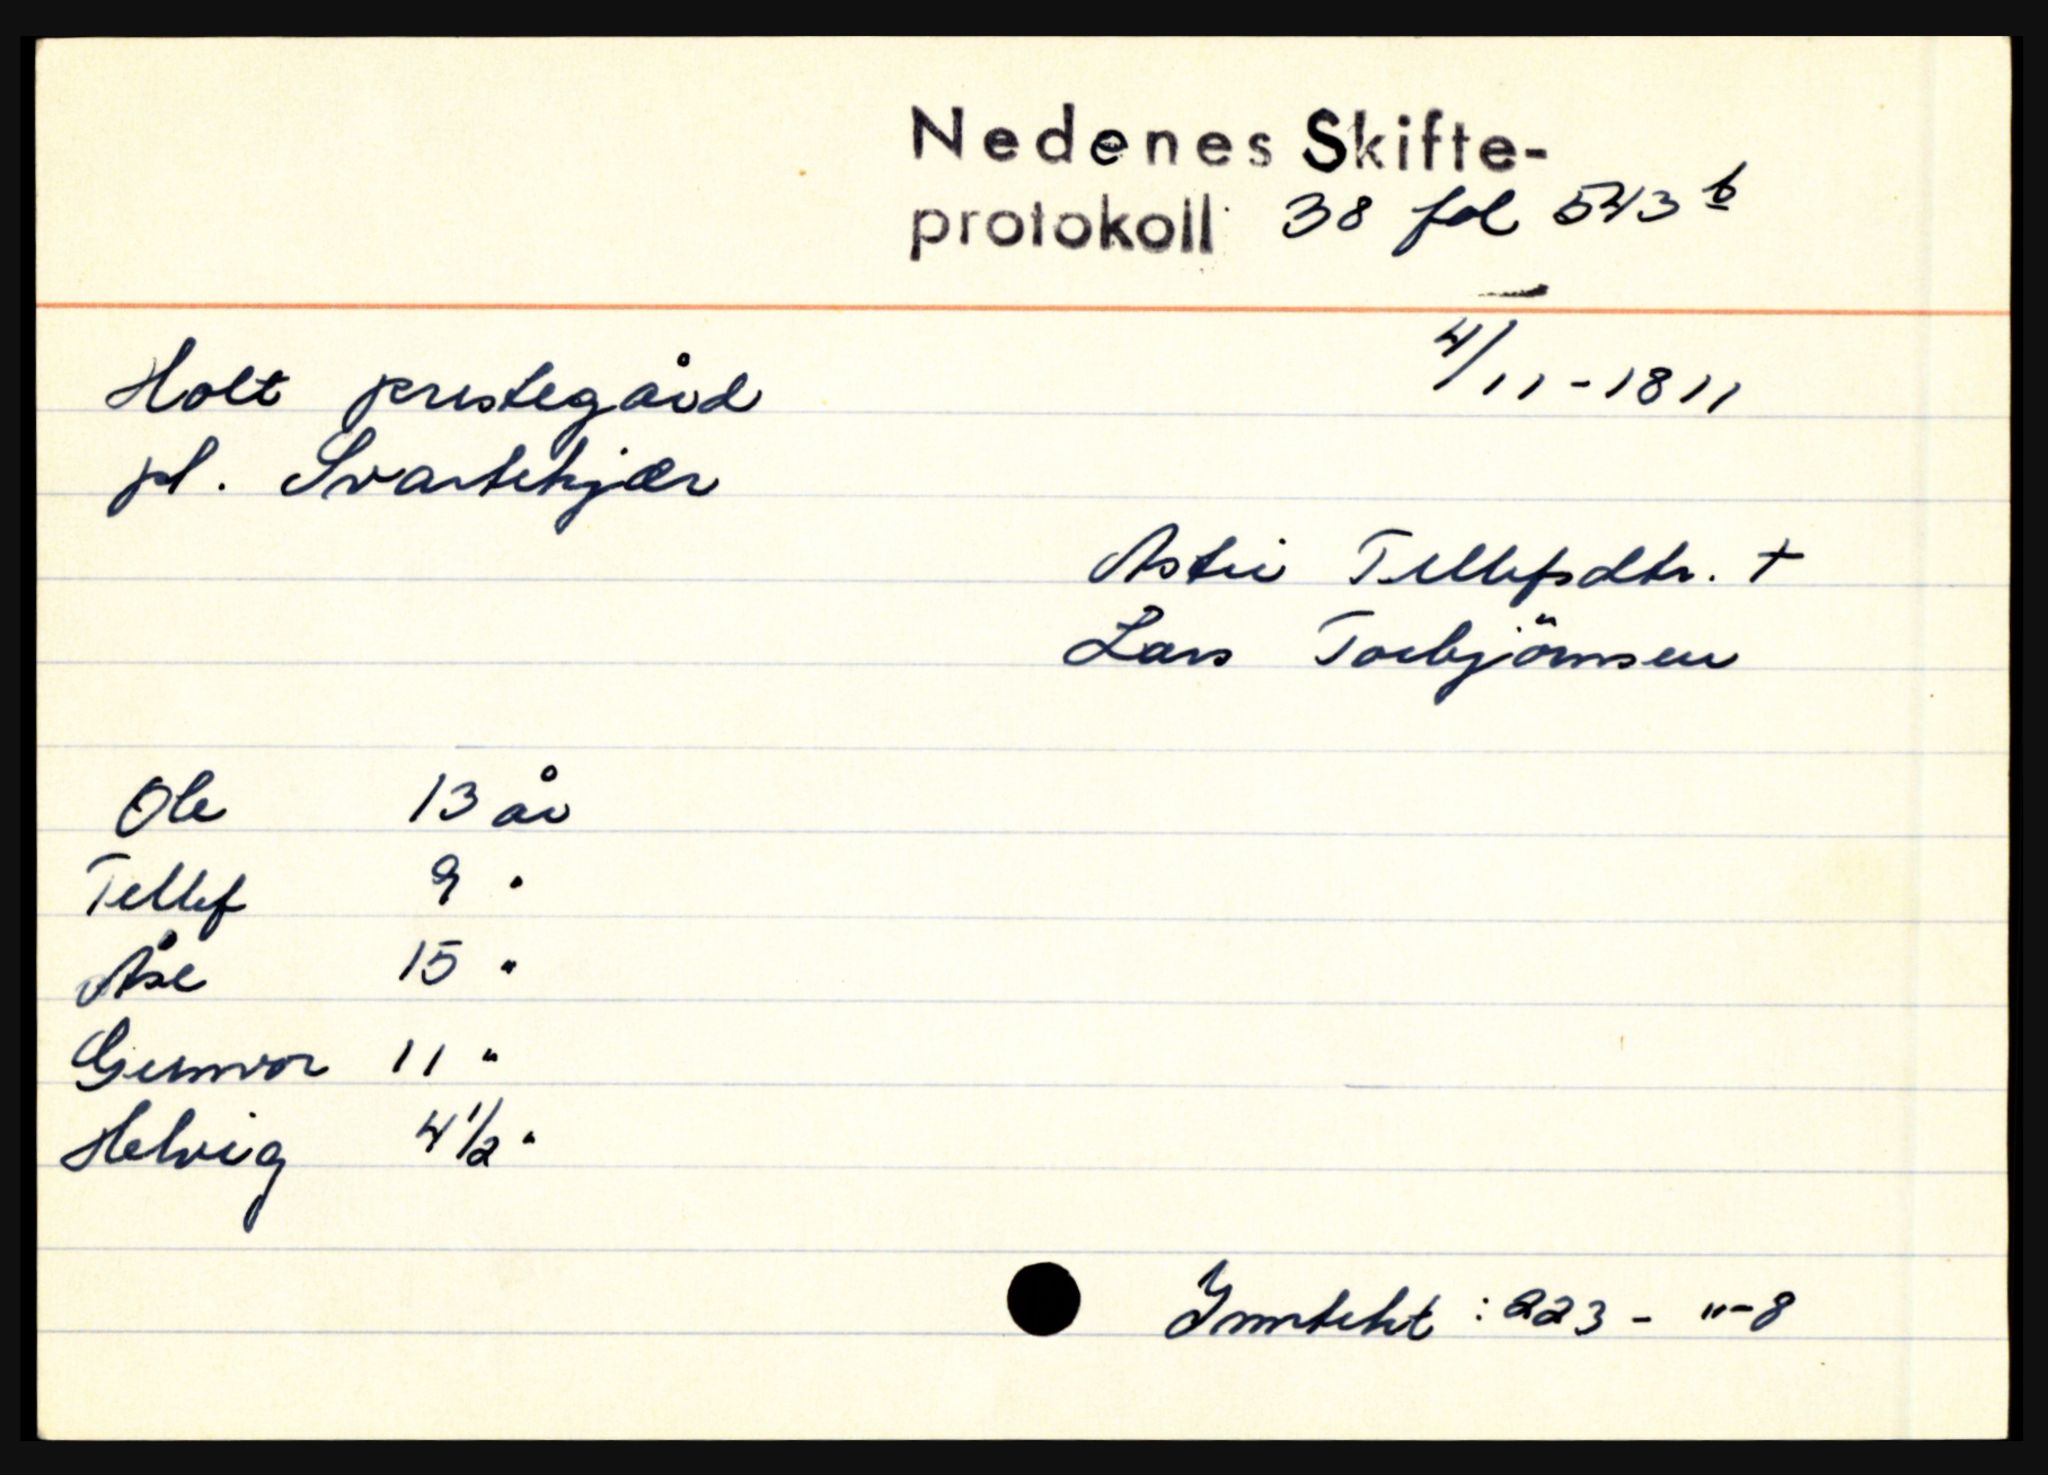 Nedenes Skifte-
protokoll 38 fol 543 b
4/11-1811
Holt prestegård
pl. Svartekjær
Astri Tellefsdtr. †
Lars Torbjörnsen
Ole 13 år
Tellef 9 "
Åse 15 "
Gunvor 11 "
Helvig 4 1/2 "
Inntekt : 223 - "-8